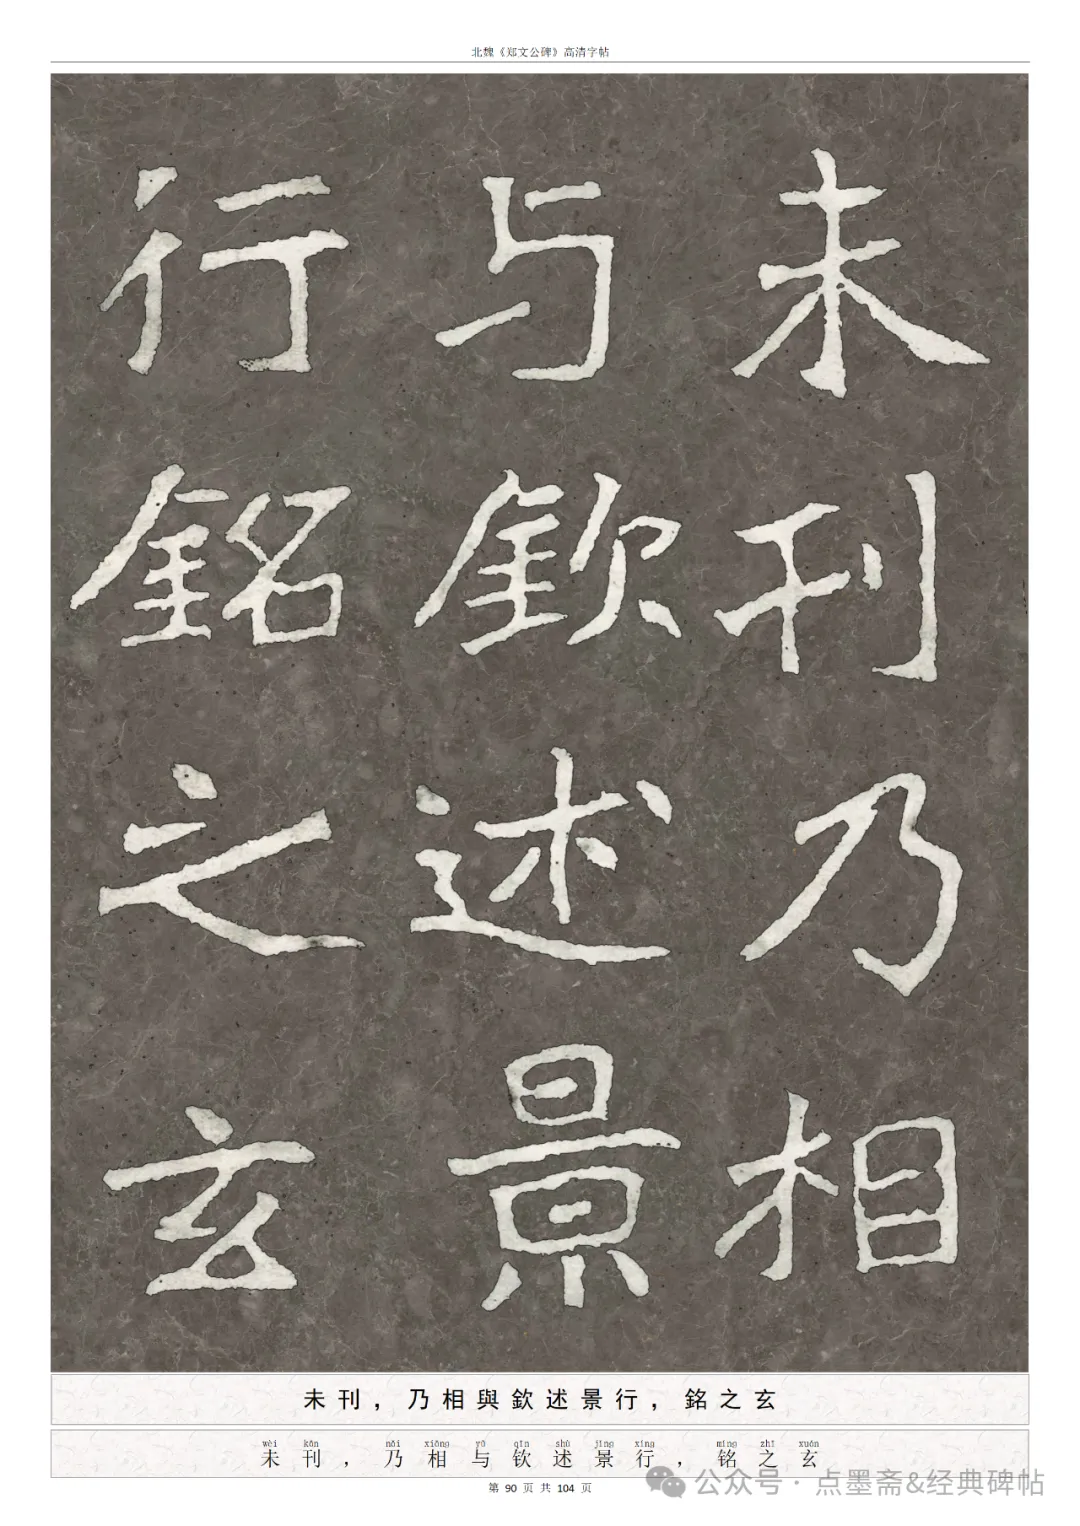 北魏《郑文公碑》高清字帖
未刊乃相
与欽述景
行銘之玄
未刊，乃相與欽述景行，銘之玄
wèi kān nǎi xiāng yǔ qīn shù jǐng xíng míng zhī xuán
未刊，乃相与钦述景行，铭之玄
第 90 页 共 104 页
公众号 · 点墨斋&经典碑帖